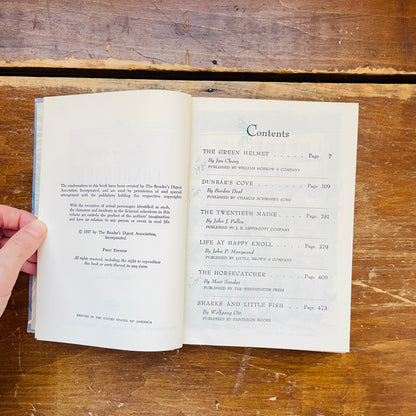 The condensations in this book have been created by The Reader's Digest
Association, Incorporated, and are used by permission of and special
arrangement with the publishers holding the respective copyrights.
With the exception of actual personages identified as such,
the characters and incidents in the fictional selections in this
volume are entirely the product of the authors' imagination
and have no relation to any person or event in real life.
© 1957 by The Reader's Digest Association,
Incorporated
First Edition
All rights reserved, including the right to reproduce
this book or parts thereof in any form
PRINTED IN THE UNITED STATES OF AMERICA
Contents
THE GREEN HELMET . . . . . . Page 7
By Jon Cleary
PUBLISHED BY WILLIAM MORROW & COMPANY
DUNBAR'S COVE . . . . . . Page 109
By Borden Deal
PUBLISHED BY CHARLES SCRIBNER'S SONS
THE TWENTIETH MAINE . . . . . Page 291
By John J. Pullen
PUBLISHED BY J. B. LIPPINCOTT COMPANY
LIFE AT HAPPY KNOLL . . . . . Page 379
By John P. Marquand
PUBLISHED BY LITTLE, BROWN & COMPANY
THE HORSECATCHER . . . . . Page 409
By Mari Sandoz
PUBLISHED BY THE WESTMINSTER PRESS
SHARKS AND LITTLE FISH . . . . Page 473
By Wolfgang Ott
PUBLISHED BY PANTHEON BOOKS